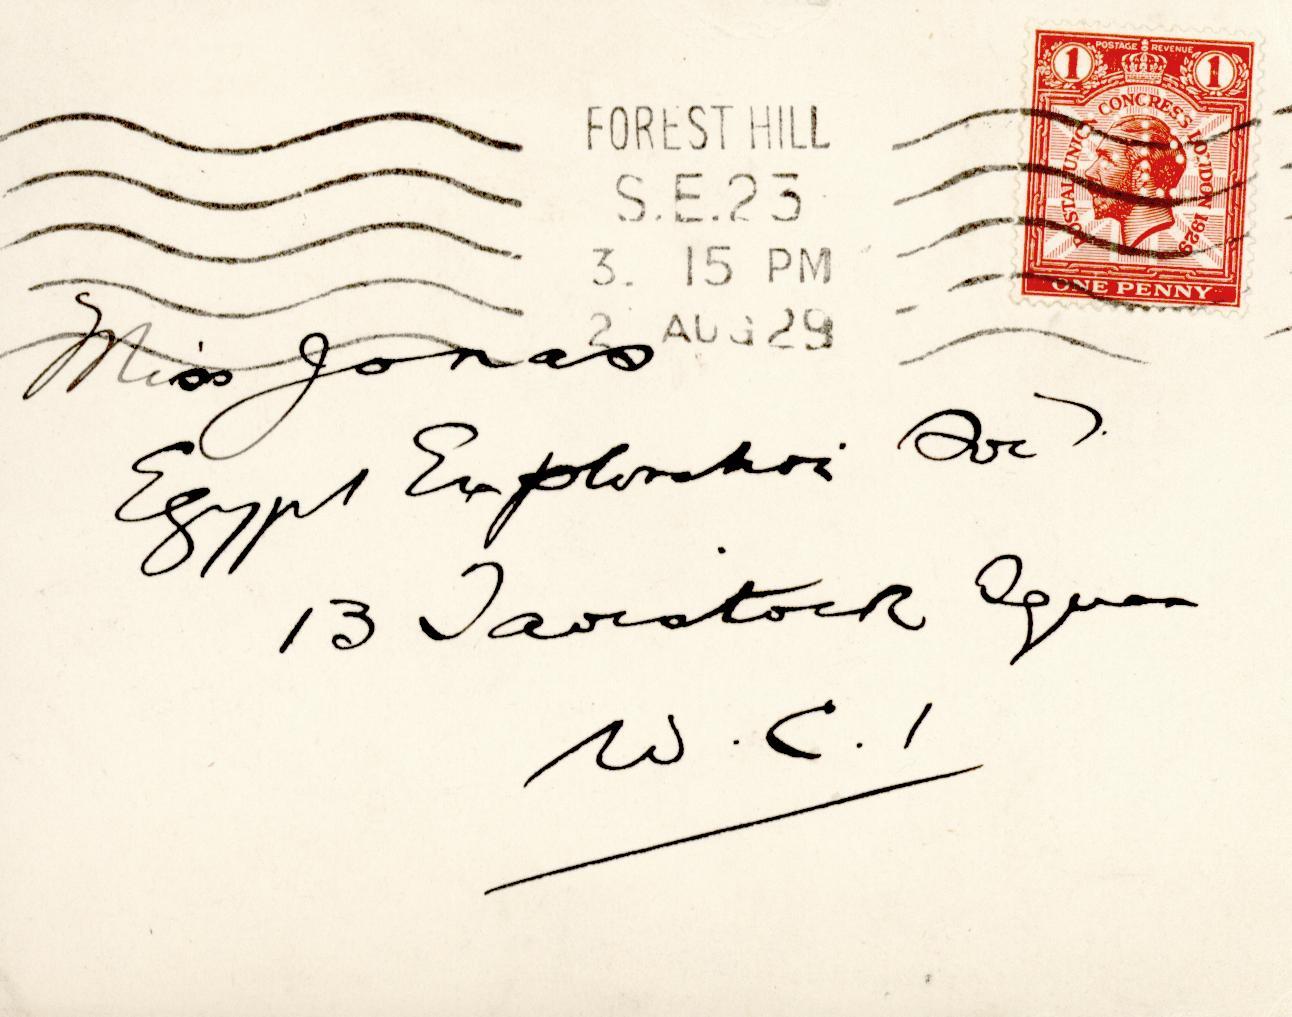 1 POSTAGE REVENUE 1
POSTAL UNION CONGRESS LONDON 1929
ONE PENNY
FOREST HILL
S.E.23
3. 15 PM
2 AUG 29
Miss Jonas
Egypt Exploration Socy.
13 Tavistock Square
W.C.1